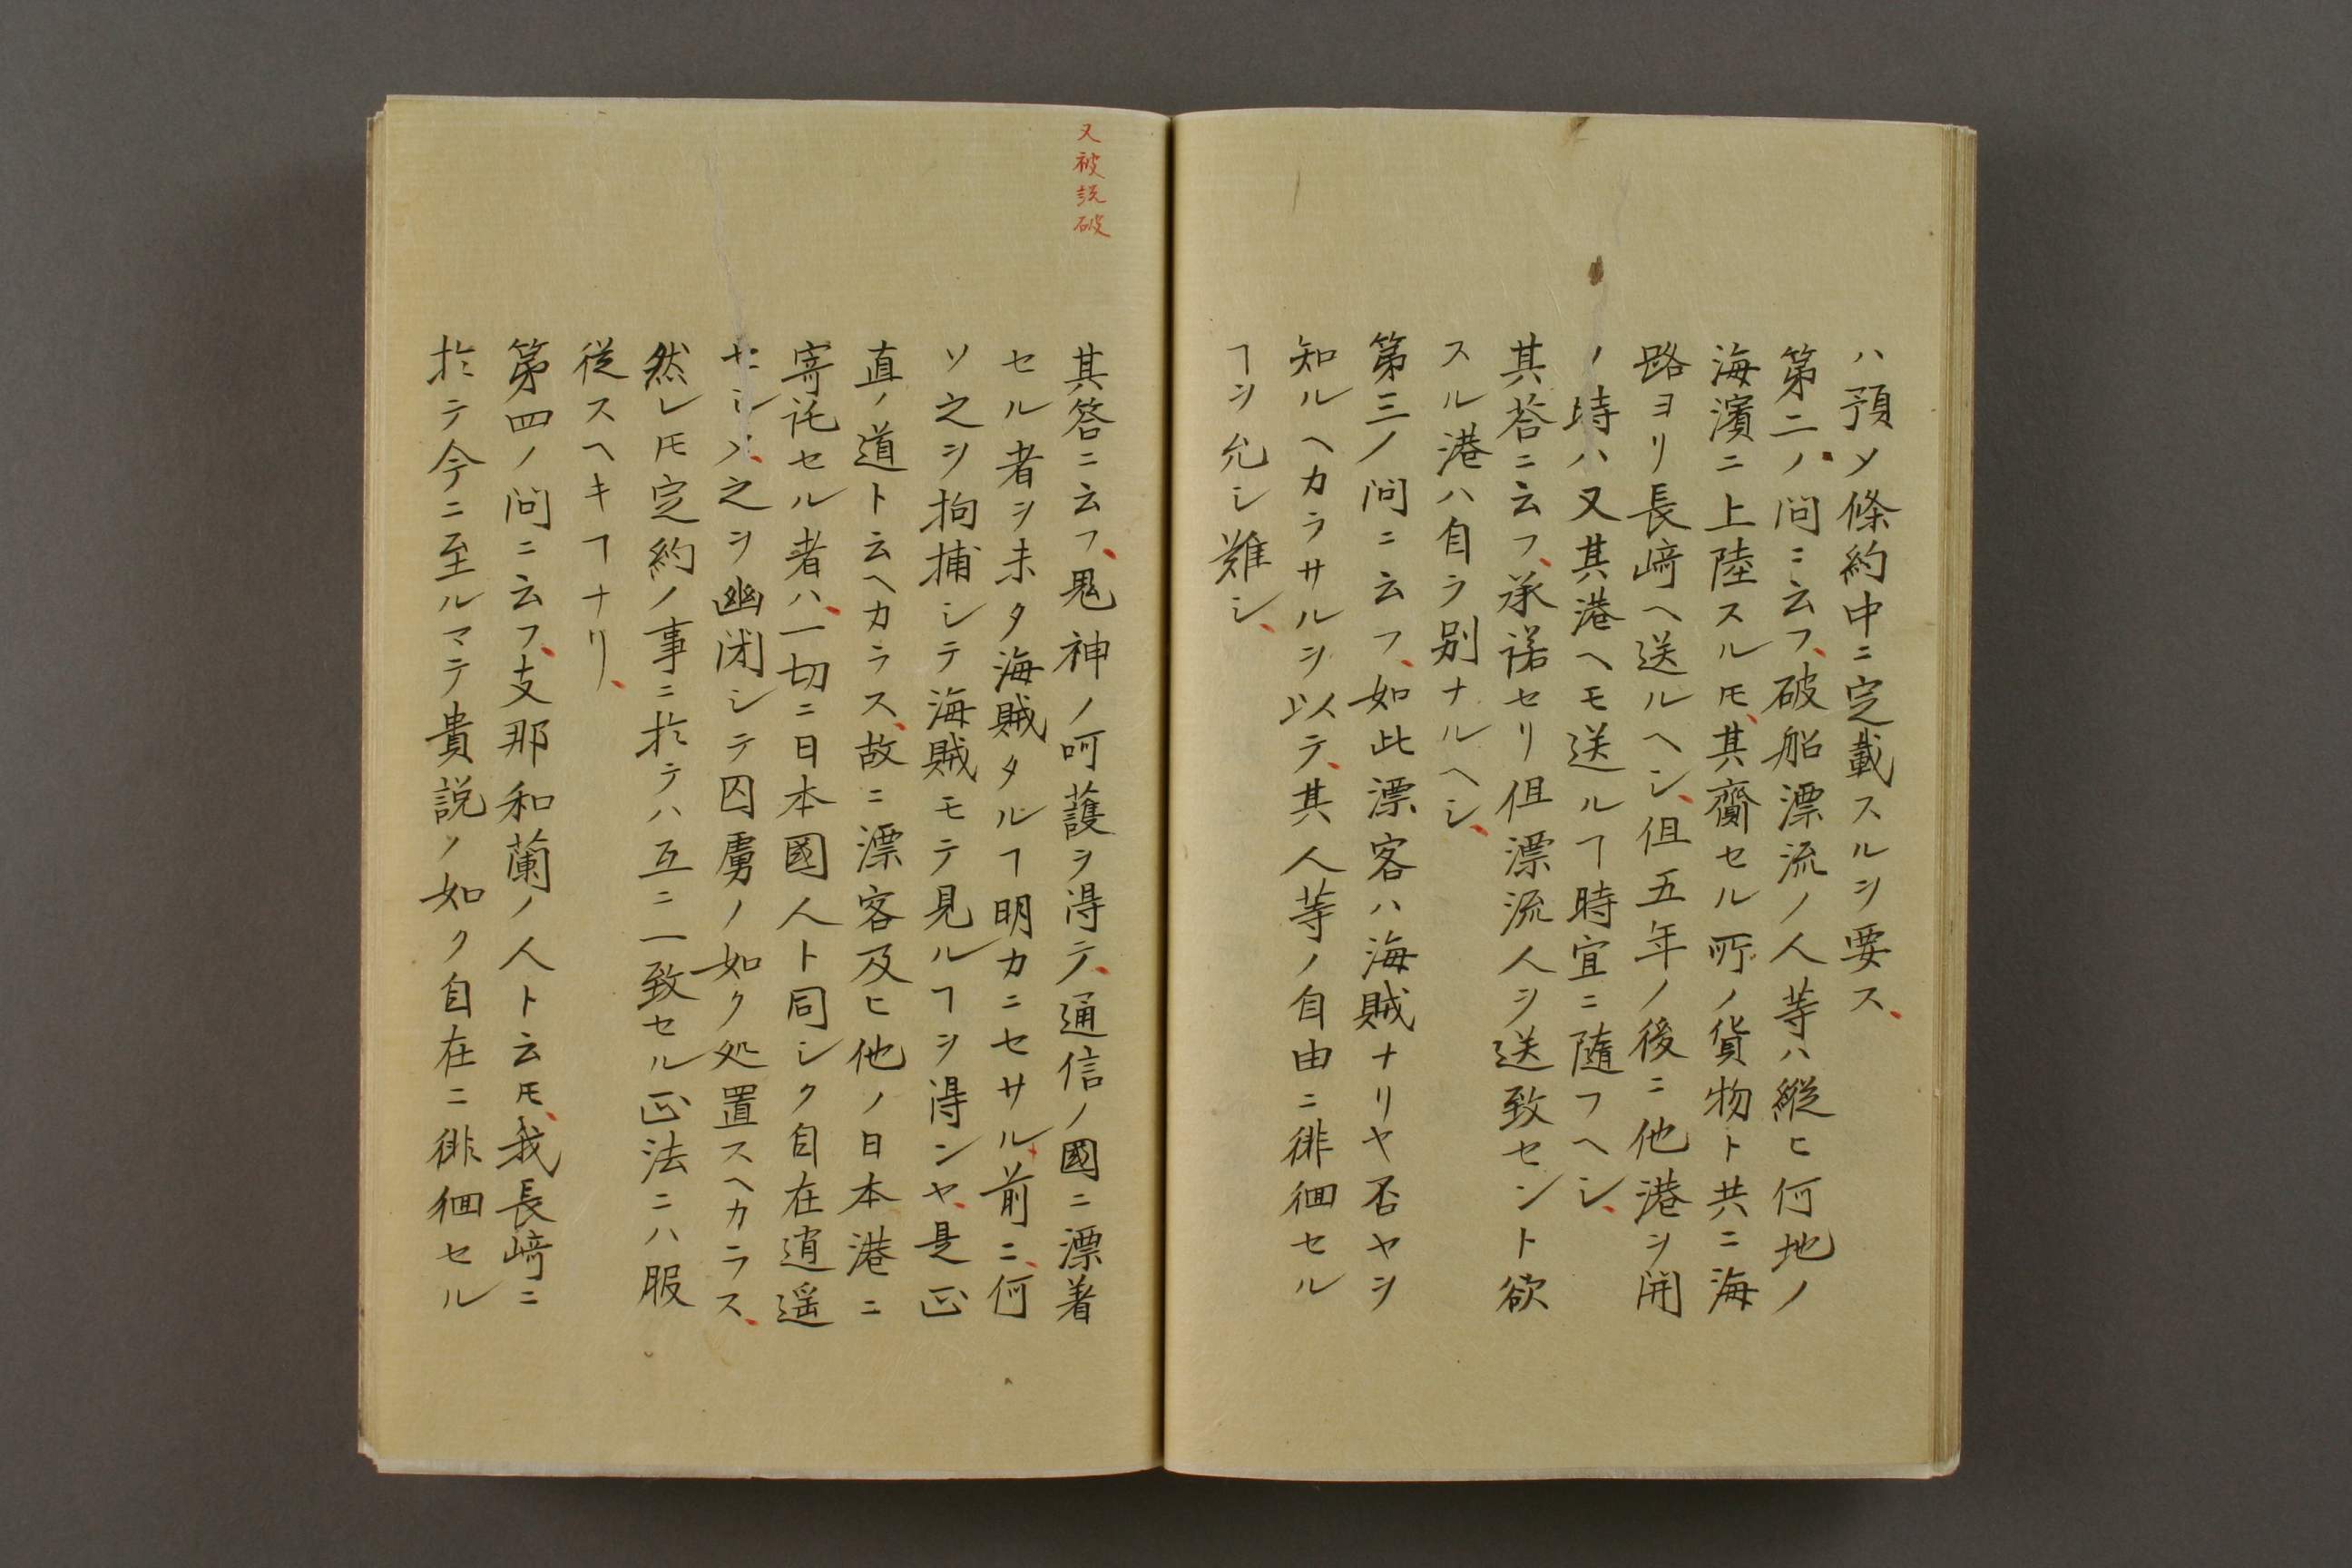 ハ預メ條約中ニ定載スルヲ要ス、
第二ノ問ニ云フ、破船漂流ノ人等ハ縦ヒ何地ノ
海濱ニ上陸スル𪜈、其齎セル所ノ貨物ト共ニ海
路ヨリ長﨑ヘ送ルヘシ、但五年ノ後ニ他港ヲ開
ノ時ハ又其港ヘモ送ルヿ時宜ニ隨フヘシ、
其荅ニ云フ、承諾セリ但漂流人ヲ送致セント欲
スル港ハ自ラ別ナルヘシ、
第三ノ問ニ云フ、如此漂客ハ海賊ナリヤ否ヤヲ
知ルヘカラサルヲ以テ、其人等ノ自由ニ徘徊セル
ヿヲ允シ難シ、
又被説破
其答ニ云フ、鬼神ノ呵護ヲ得テ、通信ノ國ニ漂着
セル者ヲ未タ海賊タルヿ明カニセサル、前ニ、何
ソ之ヲ拘捕シテ海賊モテ見ルヿヲ得ンヤ、是正
直ノ道ト云ヘカラス、故ニ漂客及ヒ他ノ日本港ニ
寄託セル者ハ、一切ニ日本國人ト同シク自在逍遥
セシメ、之ヲ幽閉シテ囚虜ノ如ク処置スヘカラス、
然レ𪜈定約ノ事ニ於テハ互ニ一致セル正法ニハ服
従スヘキヿナリ、
第四ノ問ニ云フ、支那和蘭ノ人ト云𪜈、我長﨑ニ
於テ今ニ至ルマテ貴説ノ如ク自在ニ徘徊セル